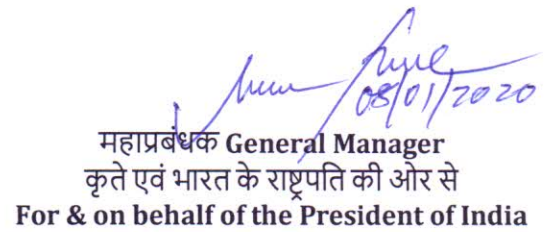 08/01/2020
महाप्रबंधक General Manager
कृते एवं भारत के राष्ट्रपति की ओर से
For & on behalf of the President of India